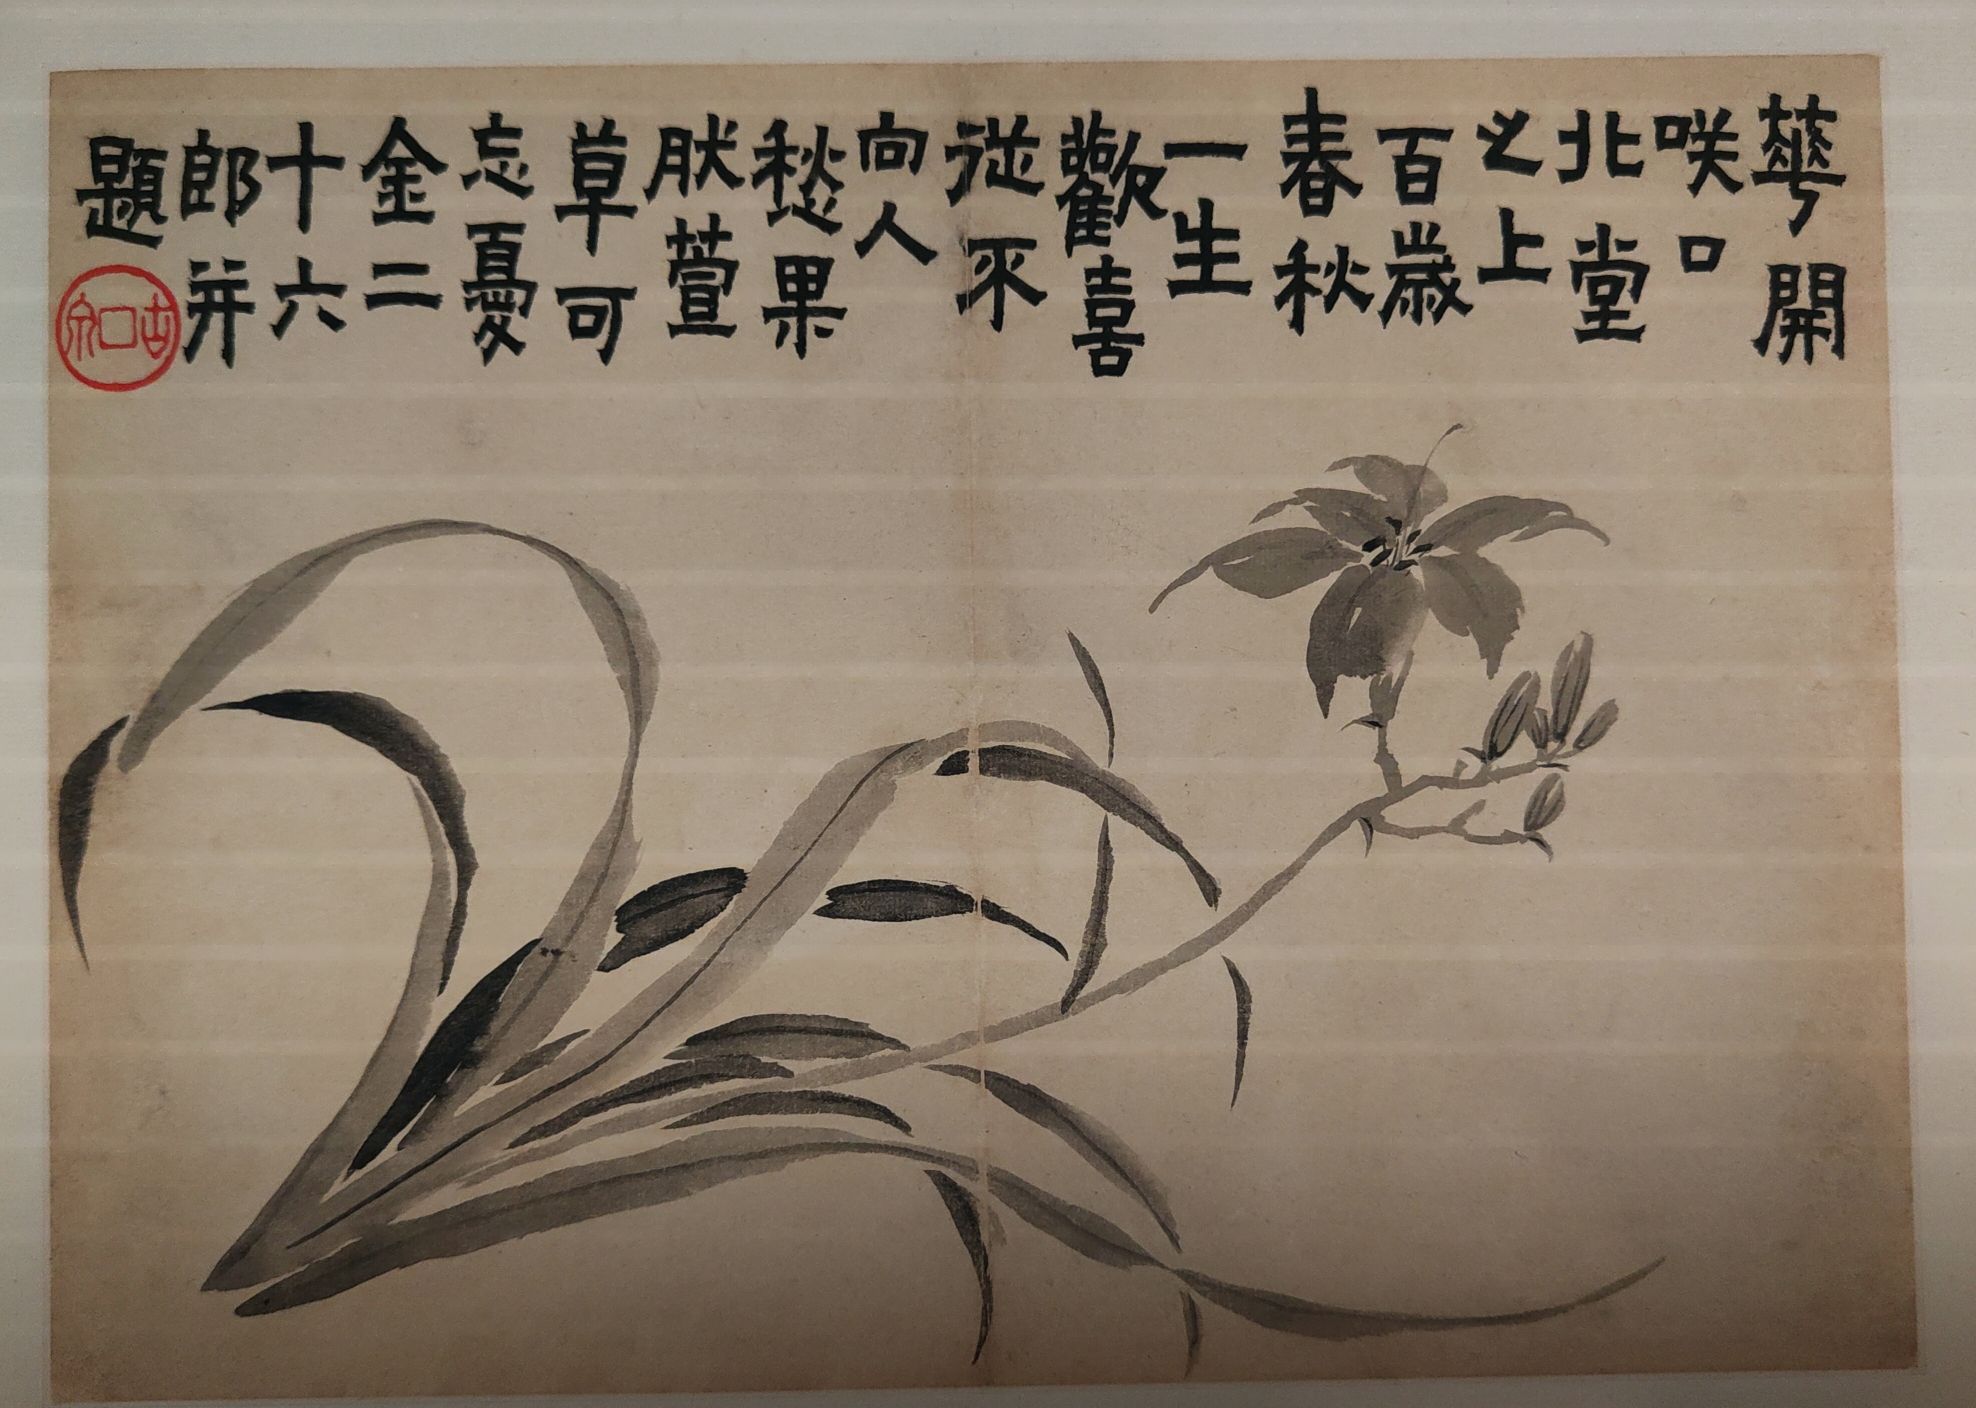 華開
咲口
北堂
之上
百歲
春秋
一生
歡喜
從來
向人
愁果
肰萱
草可
忘憂
金二
十六
郎并
題
古口如